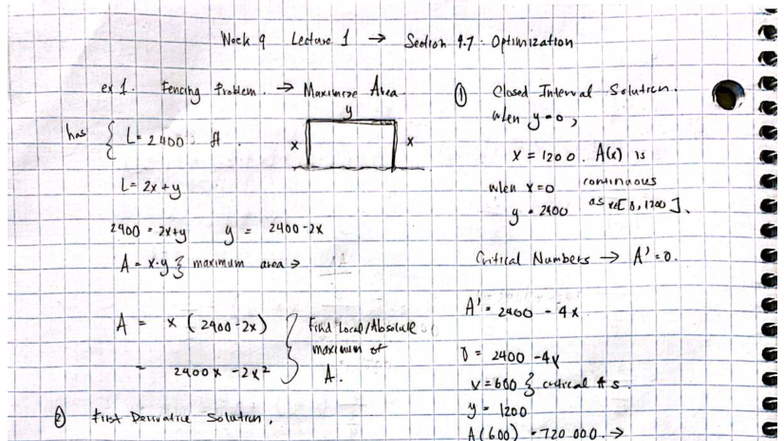 Week 9 Lecture 1 → Section 4.7 : Optimization
ex 1. Fencing Problem. → Maximize Area.
y
has { L = 2400 ft.
x
x
L = 2x + y
2400 = 2x+y y = 2400 - 2x
A = x·y } maximum area →
A = x (2400 - 2x)
= 2400x - 2x²
} Find Local/Absolute
maximum of
A.
② First Derivative Solution.
① Closed Interval Solution.
when y = 0,
x = 1200. A(x) is
when x = 0 continuous
y = 2400 as x∈[0, 1200].
Critical Numbers → A' = 0.
A' = 2400 - 4x.
0 = 2400 - 4x
x = 600 } critical #s.
y = 1200
A(600) = 720 000. →